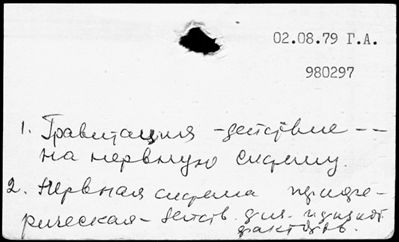 02.08.79 Г.А.
980297
1. Гравитация - действие --
на нервную систему.
2. Нервная система
рическая - действ.
факторов.